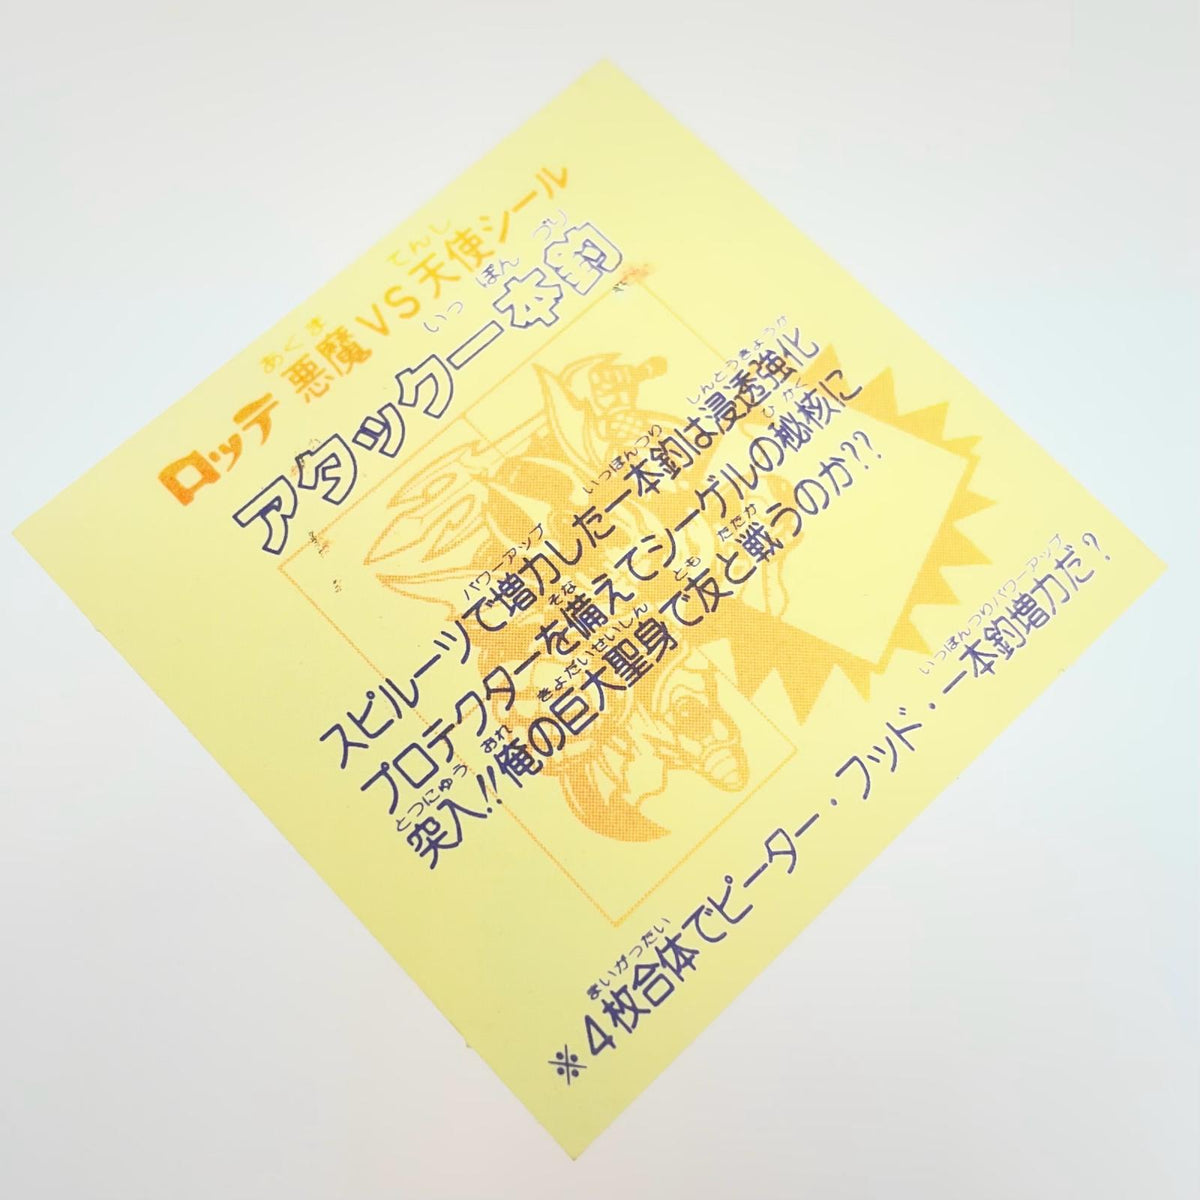 ロッテ 悪魔VS天使シール
アタック一本釣
スピルーツで増力した一本釣は浸透強化
プロテクターを備えてシーゲルの秘核に
突入!!俺の巨大聖身で友と戦うのか??
※4枚合体でピーター・フッド・一本釣増力だ?